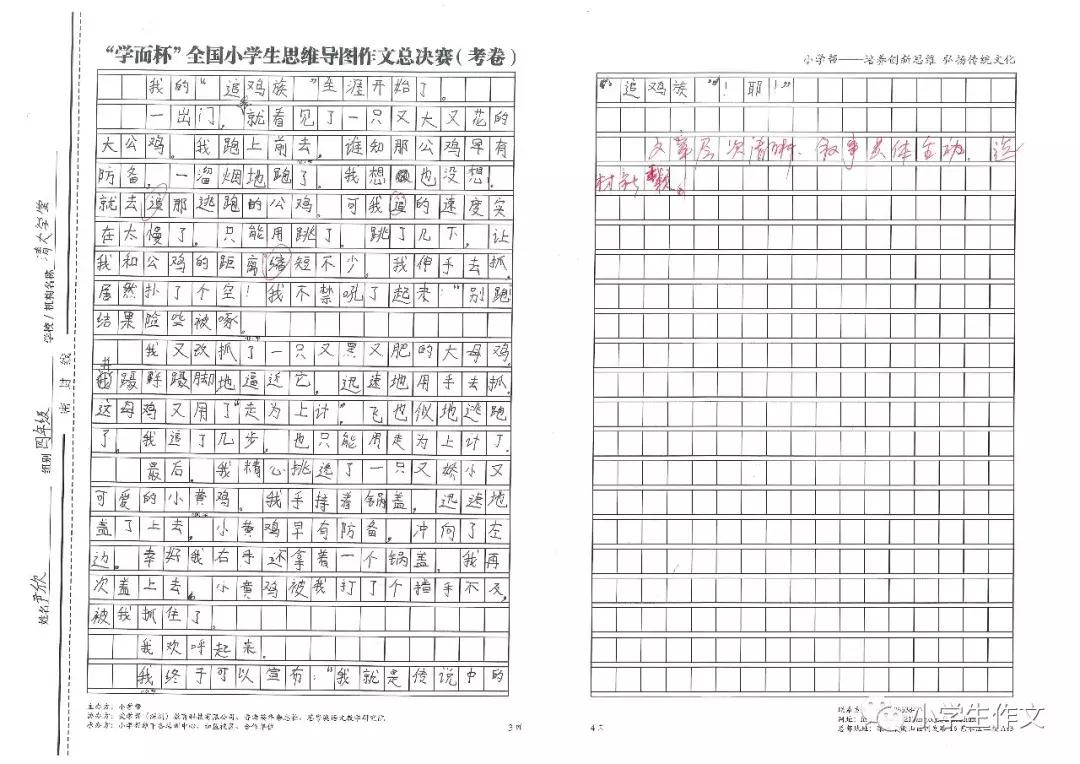 "学而杯"全国小学生思维导图作文总决赛(考卷)
学校/机构名称 清大学堂
组别 四年级
姓名 尹欣
密封线
我的"追鸡族"生涯开始了。
一出门,就看见了一只又大又花的
大公鸡。我跑上前去,谁知那公鸡早有
防备,一溜烟地跑了。我想也没想,
就去追那逃跑的公鸡。可我追的速度实
在太慢了,只能用跳了。跳了几下,让
我和公鸡的距离缩短不少。我伸手去抓,
居然扑了个空!我不禁吼了起来:"别跑
结果险些被啄。
我又改抓了一只又黑又肥的大母鸡,
我蹑手蹑脚地逼近它,迅速地用手去抓。
这母鸡又用了"走为上计",飞也似地逃跑
了。我追了几步,也只能用走为上计了。
最后,我精心挑选了一只又娇小又
可爱的小黄鸡。我手持着锅盖,迅速地
盖了上去。小黄鸡早有防备,冲向了左
边。幸好我右手还拿着一个锅盖,我再
次盖上去,小黄鸡被我打了个措手不及,
被我抓住了。
我欢呼起来。
我终于可以宣布:"我就是传说中的
主办方:小学帮
3页
小学帮——培养创新思维 弘扬传统文化
"追鸡族"!耶!"
文章层次清晰,叙事具体生动,选
材新颖。
4页
小学生作文